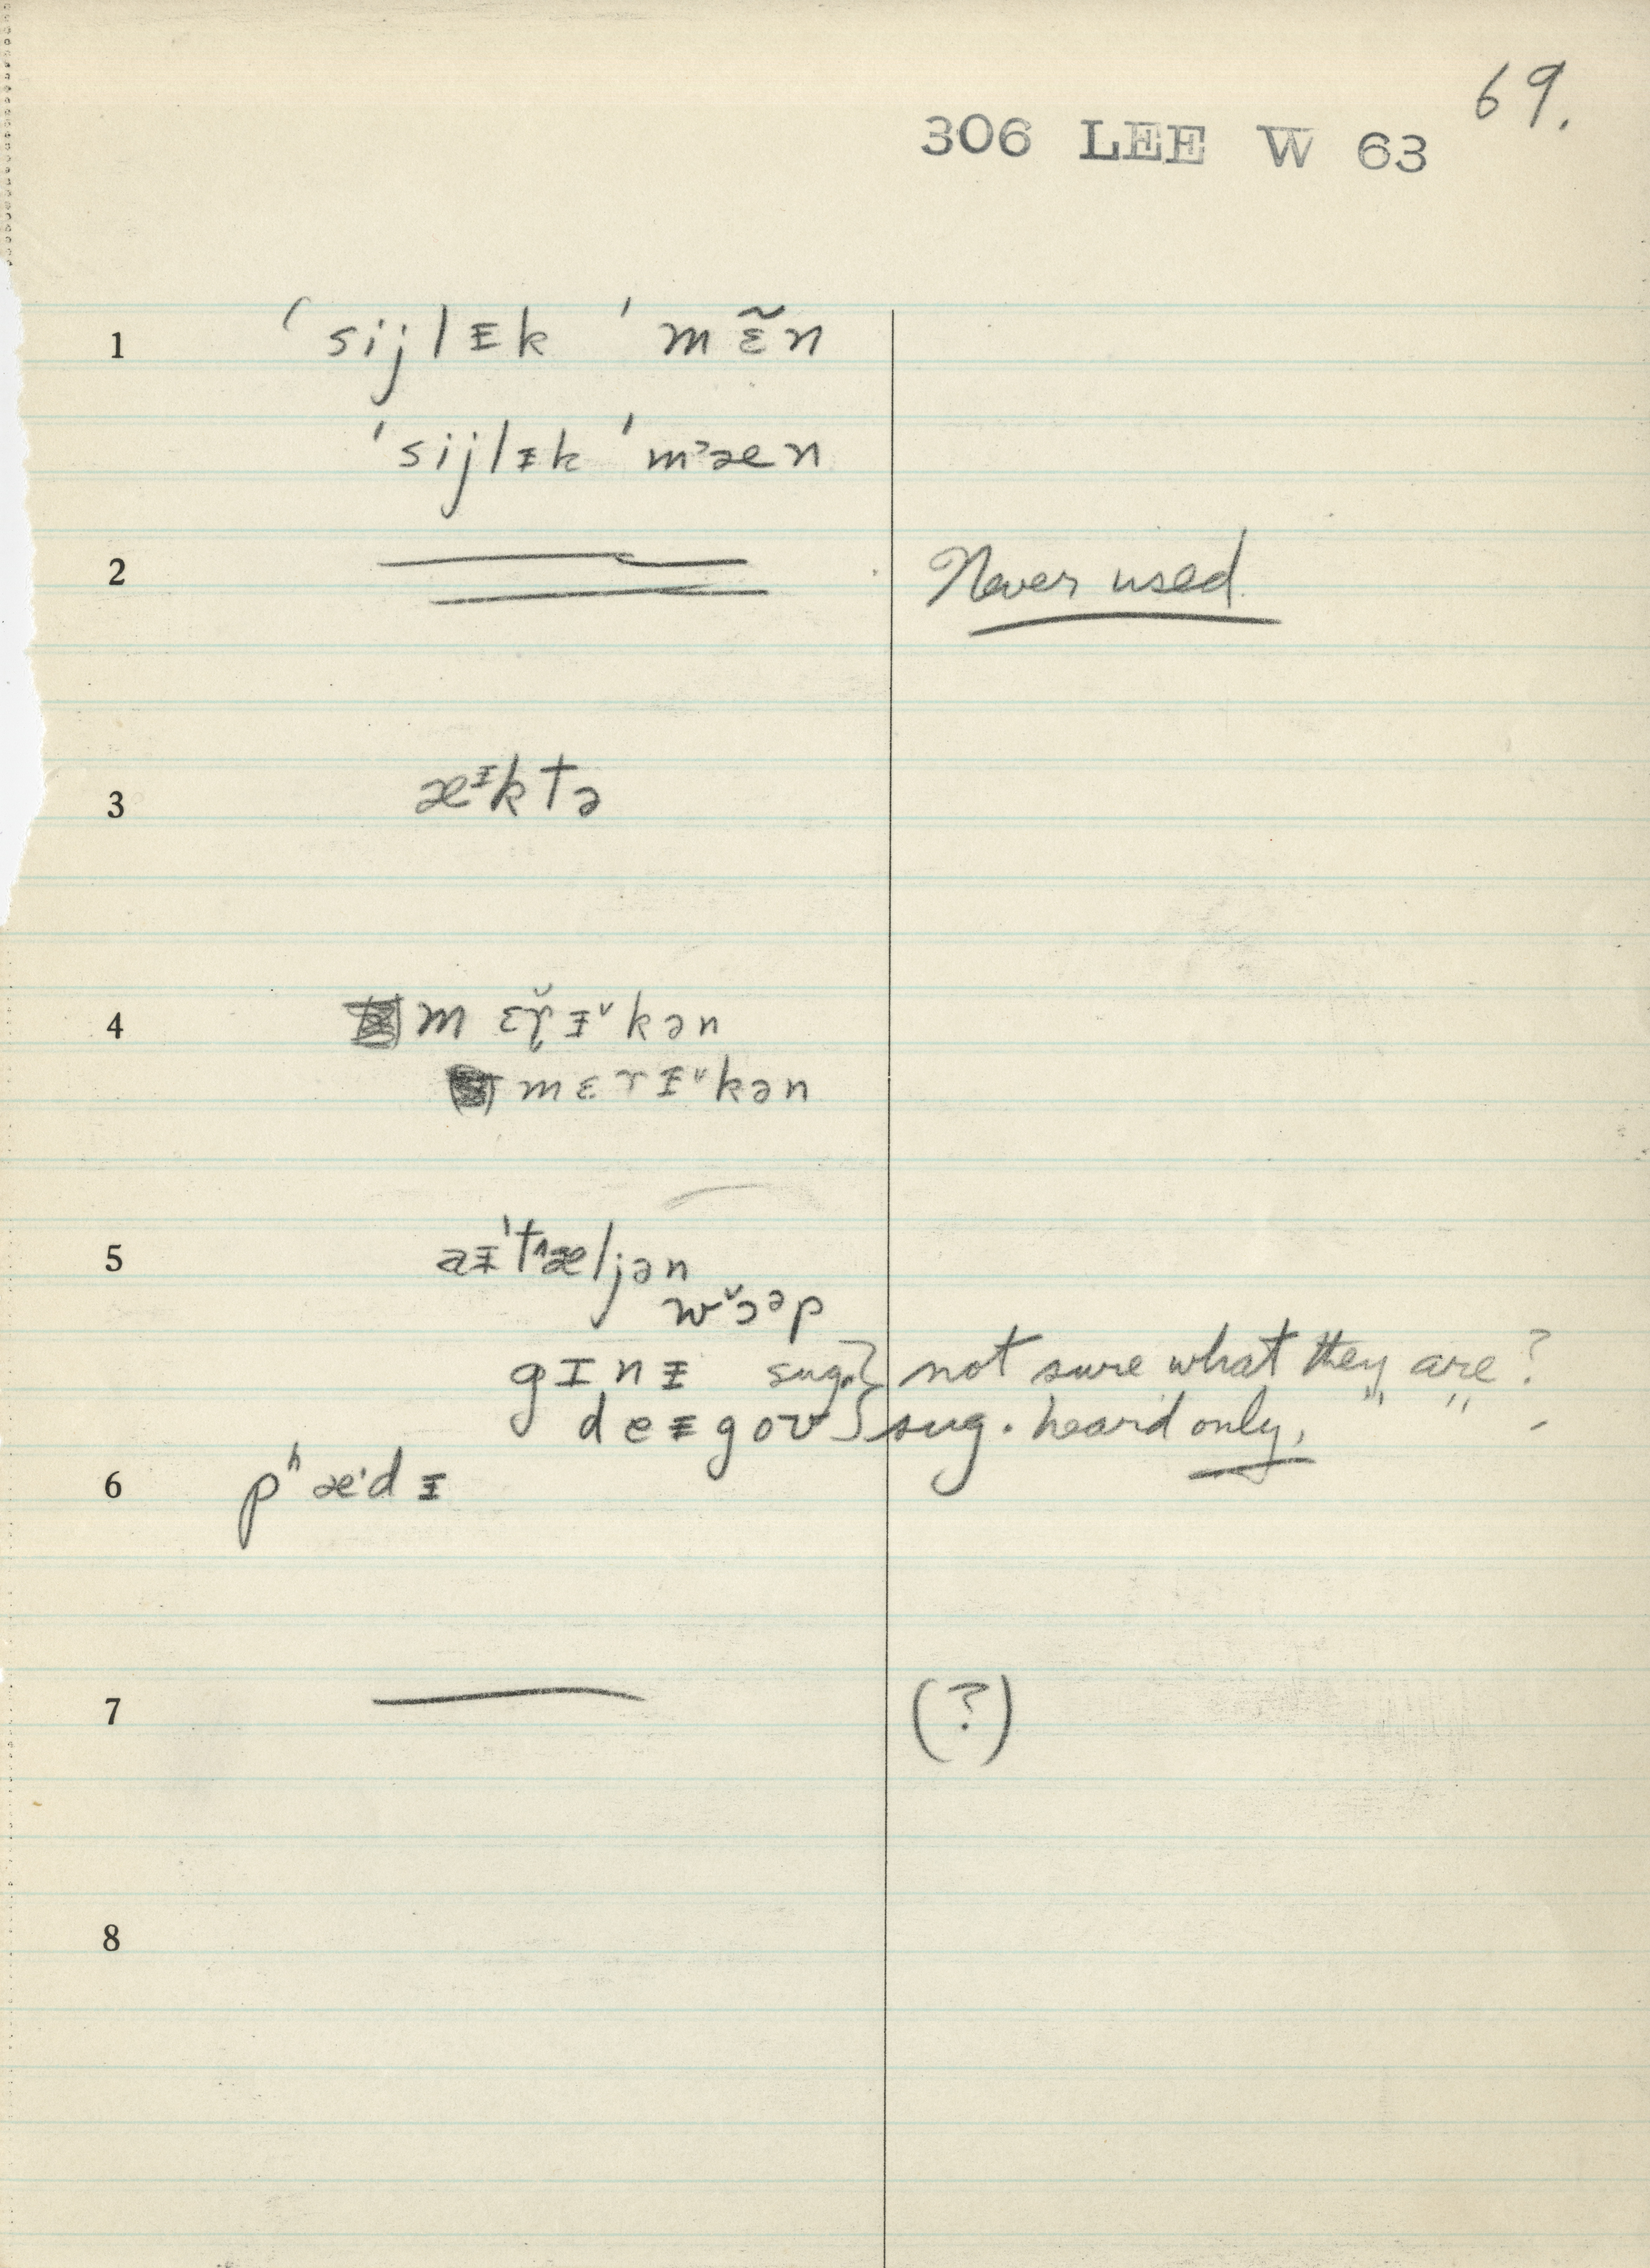 69.
306 LEE W 63
1 ˈsijlᵻk ˈmɛ̃n
ˈsijlᵻk ˈmᵊæn
2 Never used
3 æᵻktə
4 mɛɾ̆ᵻ˅kən
mɛrᵻ˅kən
5 aᵻˈtʌæljən
w˅ɔəp
gɪnᵻ sug.} not sure what they are?
deᵻgoʊ} sug. heard only, " " -
6 pʰæˑdᵻ
7 (?)
8